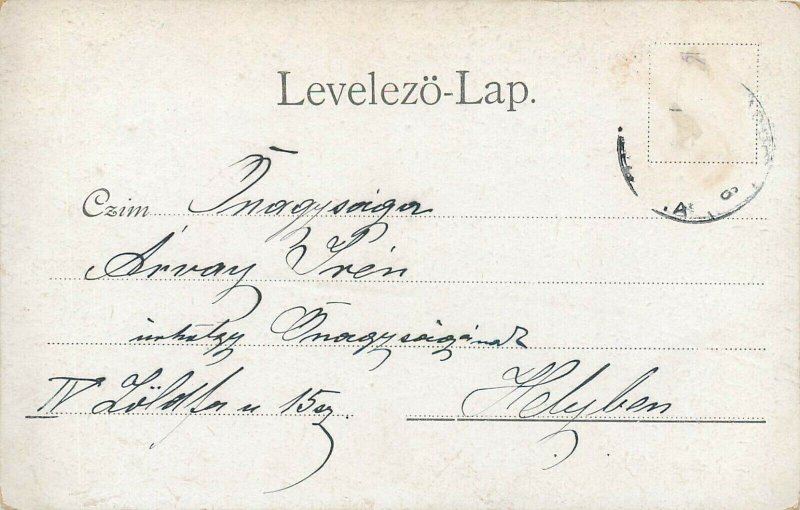 Levelezö-Lap.
Czim Őnagysága
Árvay Irén
úrhölgy Őnagyságának
IV Zöldfa u 15 sz.
Helyben